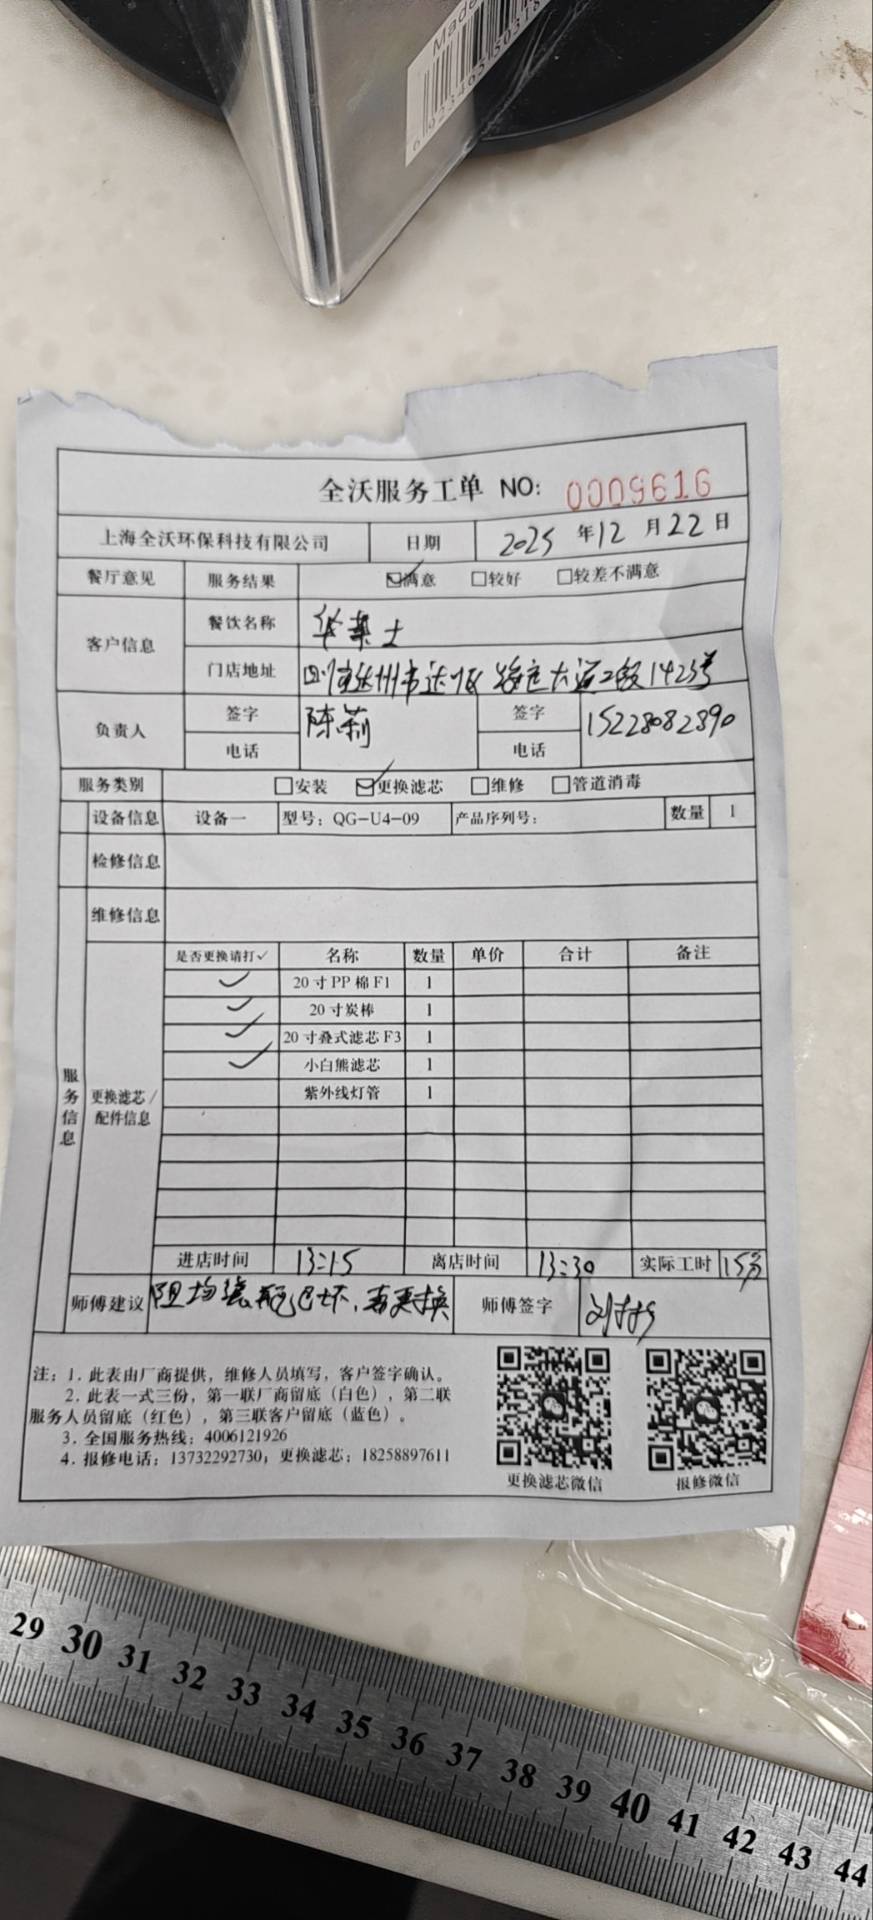 Made
全沃服务工单 NO: 0009616
上海全沃环保科技有限公司 日期 2025 年 12 月 22 日
餐厅意见 服务结果 满意 较好 较差不满意
客户信息 餐饮名称 华莱士
门店地址 四川省达州市达川区 大道二段1423号
负责人 签字 陈莉 签字 15228082890
电话 电话
服务类别 安装 更换滤芯 维修 管道消毒
设备信息 设备一 型号：QG-U4-09 产品序列号： 数量 1
检修信息
维修信息
服务信息
更换滤芯/配件信息
是否更换请打✓ 名称 数量 单价 合计 备注
✓ 20寸PP棉F1 1
✓ 20寸炭棒 1
✓ 20寸叠式滤芯F3 1
✓ 小白熊滤芯 1
紫外线灯管 1
进店时间 13:15 离店时间 13:30 实际工时 15分
师傅建议 阻垢 瓶已坏，需更换 师傅签字
注：1．此表由厂商提供，维修人员填写，客户签字确认。
2．此表一式三份，第一联厂商留底（白色），第二联
服务人员留底（红色），第三联客户留底（蓝色）。
3．全国服务热线：4006121926
4．报修电话：13732292730；更换滤芯：18258897611
更换滤芯微信 报修微信
29 30 31 32 33 34 35 36 37 38 39 40 41 42 43 44